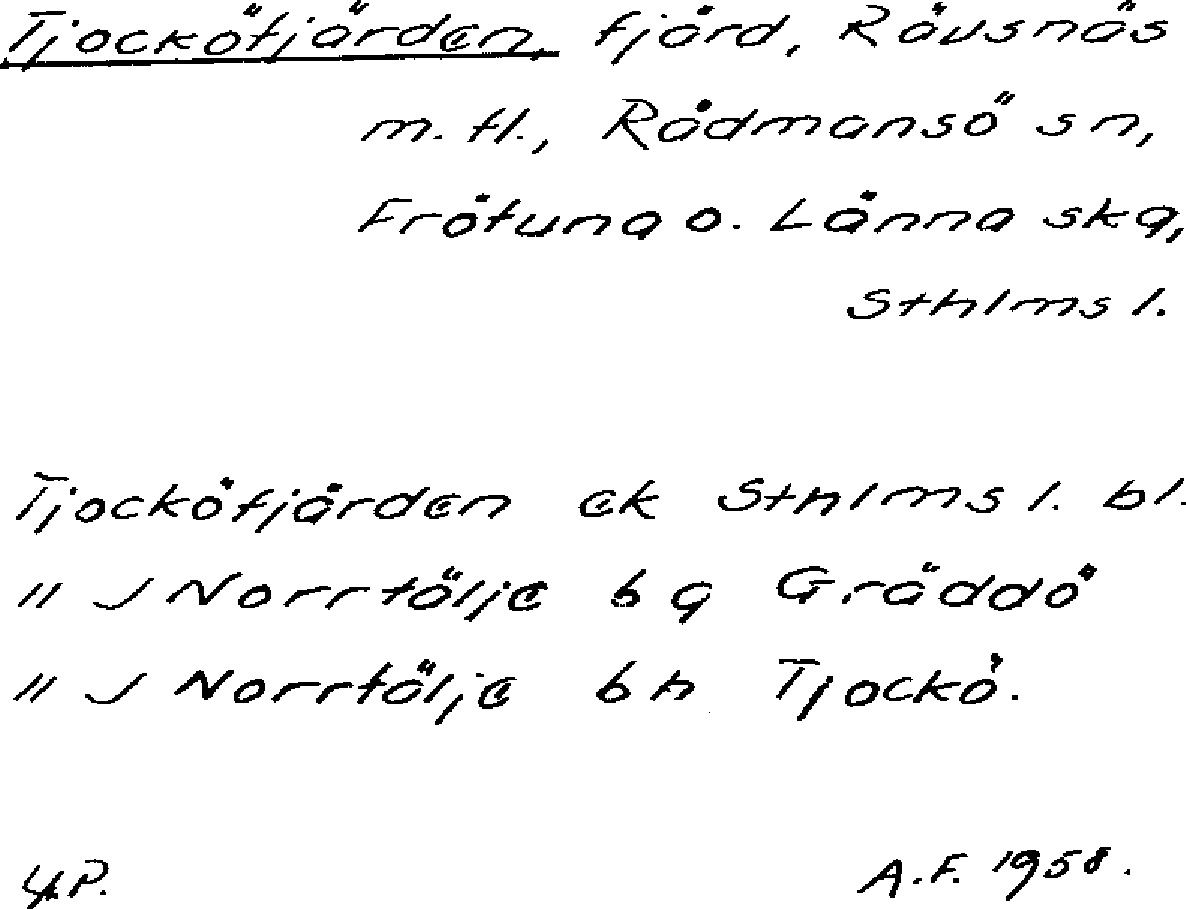 Tjocköfjärden, fjärd, Rävsnäs
m. fl., Rådmansö sn,
Frötuna o. Länna skg,
Sthlms l.
Tjocköfjärden ek Sthlms l. bl.
" J Norrtälje 6 g Gräddö
" J Norrtälje 6 h Tjockö.
A.F. 1958.